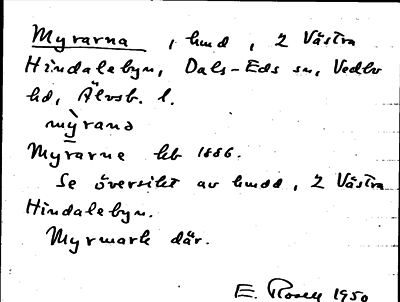 Myrarna, hmd, 2 Västra
Hindalebyn, Dals-Eds sn, Vedbo
hd, Älvsb. l.
my�Ìrana
Myrarne hb 1886.
Se översikt av hmdd, 2 Västra
Hindalebyn.
Myrmark där.
E. Rosell 1950